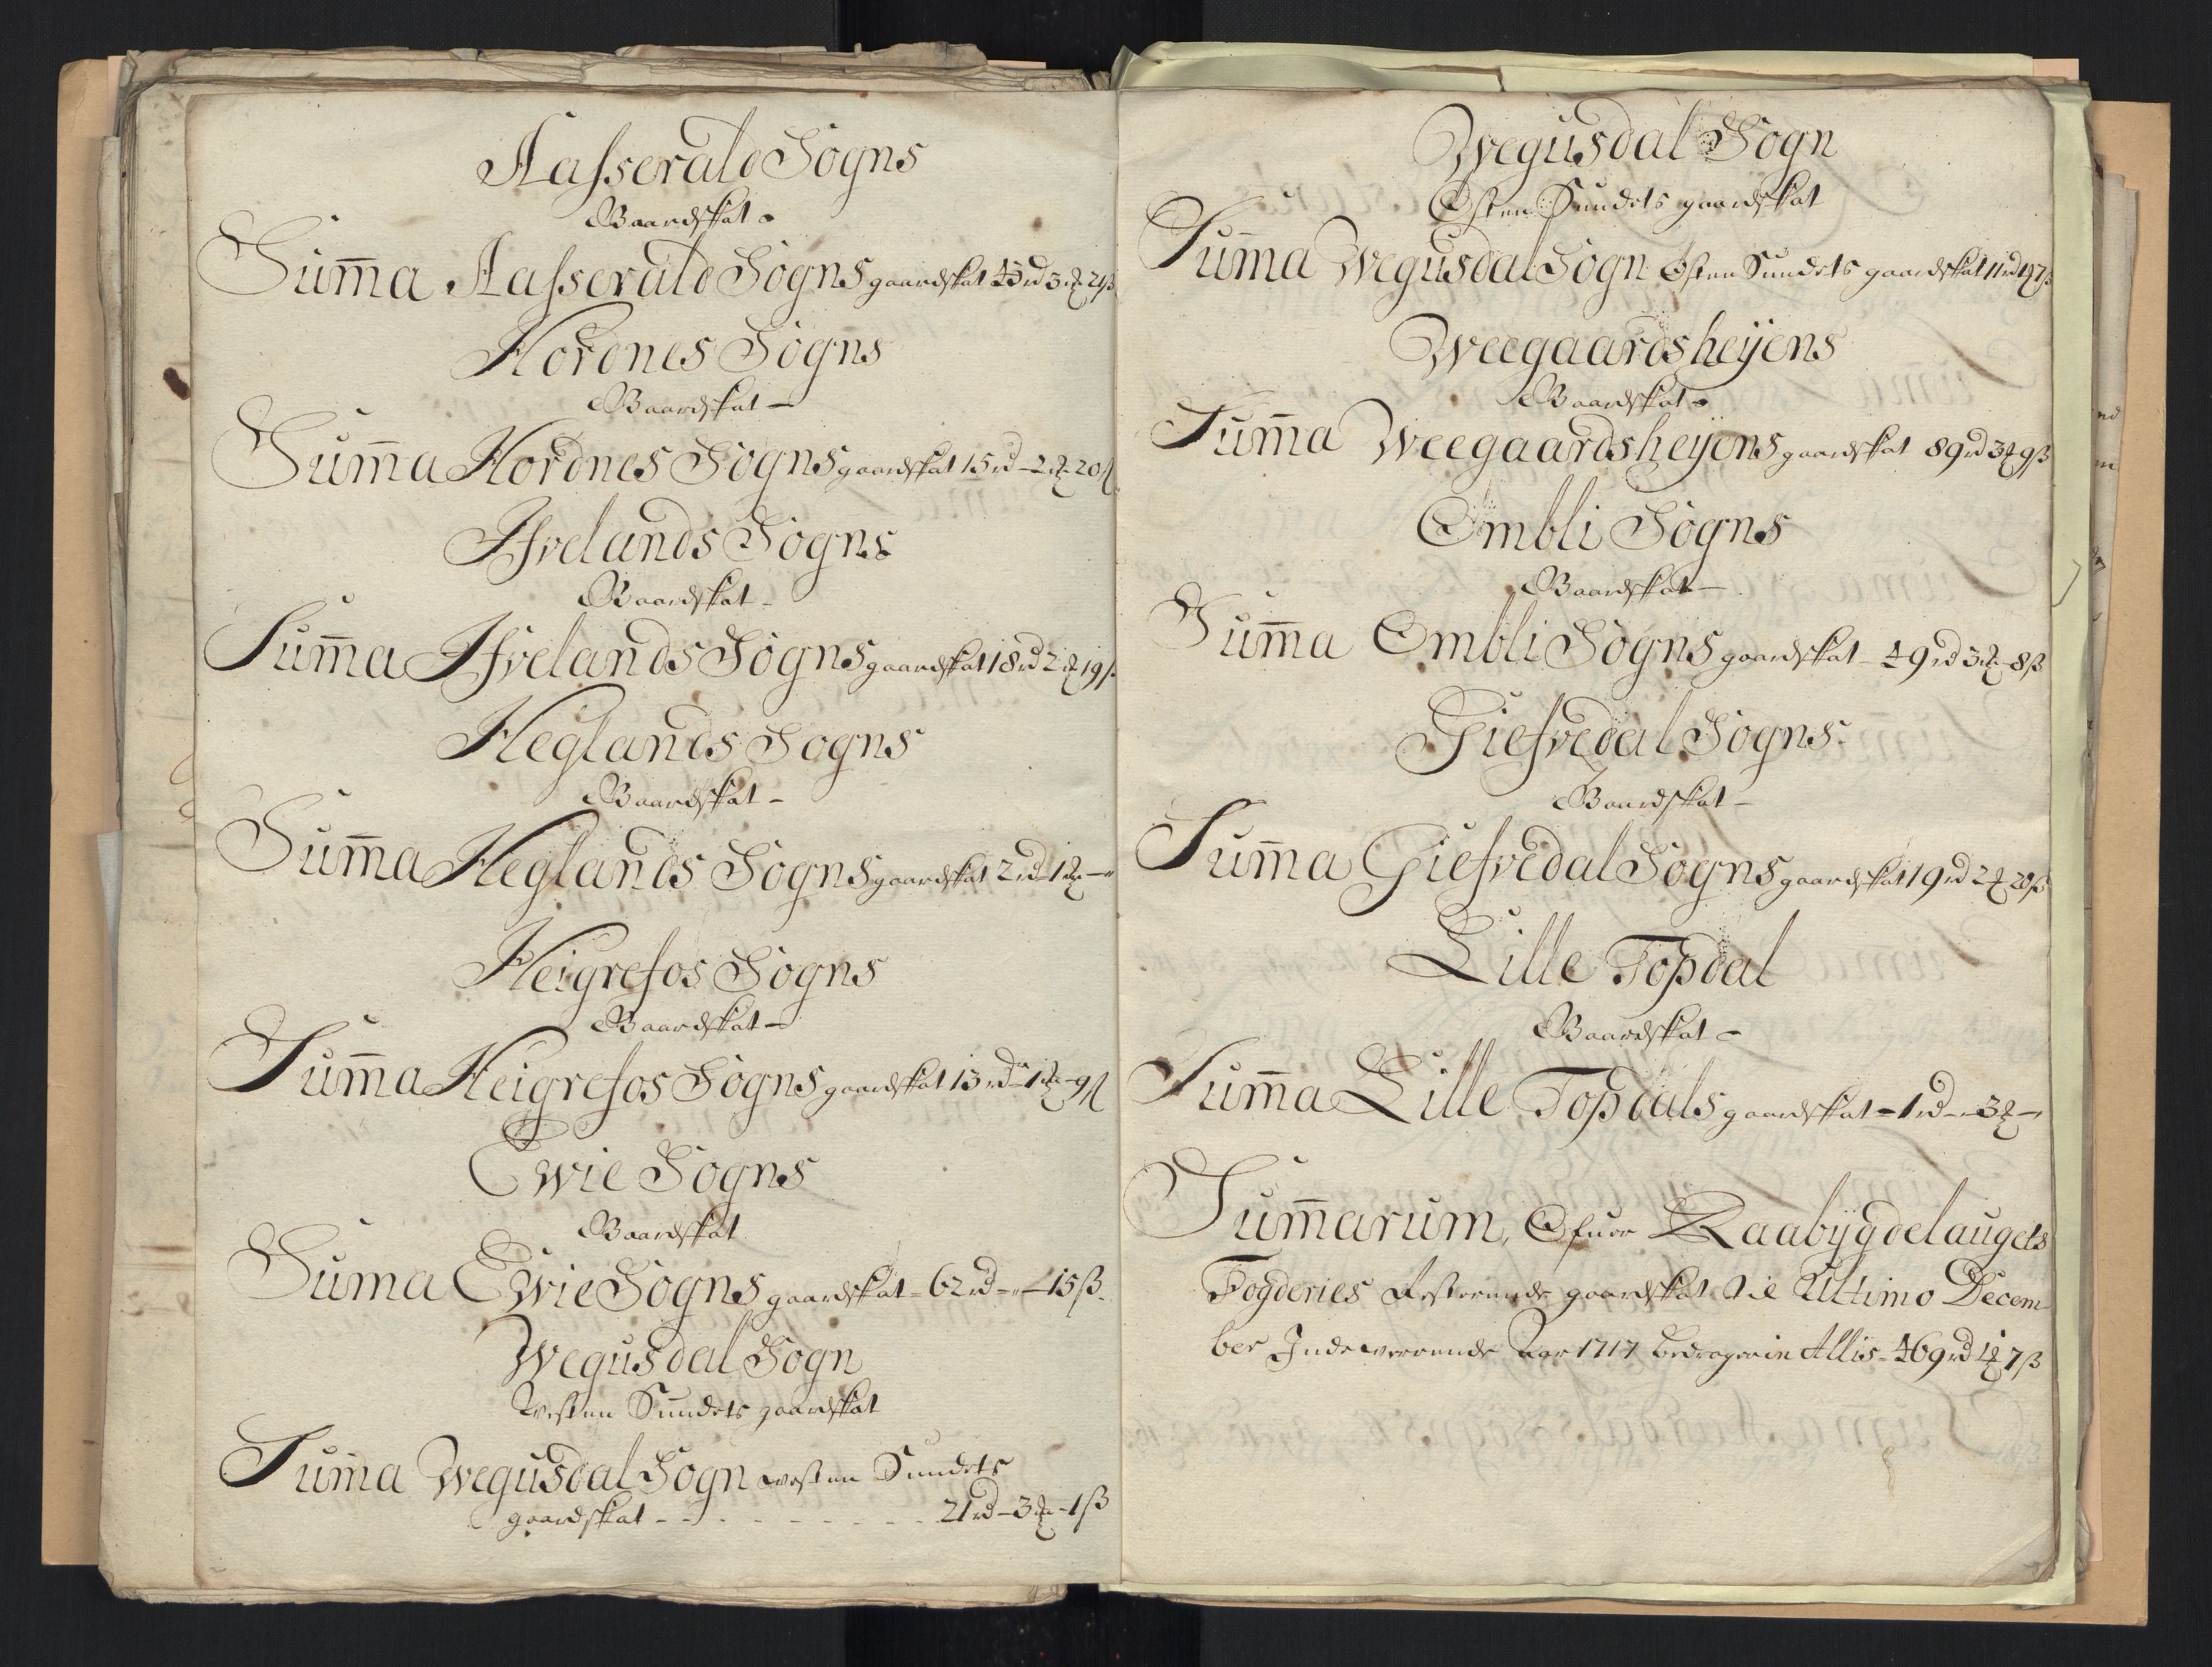 Aasserald Sogns
Gaardskat
Summa Aasserald Sogns gaardskat 43 rd 3 ort 21 ß
Hordnes Sogns
Gaardskat
Summa Hordnes Sogns gaardskat 15 rd - 2 ort 20 ß
Ifvelands Sogns
Gaardskat
Summa Ifvelands Sogns gaardskat 18 rd 2 ort 19 ß
Heglands Sogns
Gaardskat
Summa Heglands Sogns gaardskat 2 rd - 1 ort -
Heigrefos Sogns
Gaardskat
Summa Heigrefos Sogns gaardskat 13 rd - 1 ort - 9 ß
Ewie Sogns
Gaardskat
Suma Ewie Sogns gaardskat - 62 rd - " - 15 ß
Wegusdal Sogn
Westen Sundets gaardskat
Summa Wegusdal Sogn westen Sundets
gaardskat - - - - - - - - - 21 rd - 3 ort - 1 ß
Wegusdal Sogn
Østen Sundets gaardskat
Summa Wegusdal Sogn Østen Sundets gaardskat 11 rd 1 ort 7 ß
Weegaardsheijens
Gaardskat
Summa Weegaardsheijens gaardskat 89 rd 3 ort 9 ß
Ombli Sogns
Gaardskat
Summa Ombli Sogns gaardskat - 49 rd 3 ort - 8 ß
Giefvedal Sogns
Gaardskat
Summa Giefvedal Sogns gaardskat 19 rd 2 ort 20 ß
Lille Topdal
Gaardskat
Summa Lille Topdals gaardskat - 1 rd - 3 ort -
Summarum, Ofver Raabygdelaugets
Fogderies Resterende gaardskat til Ultimo Decem
ber Indeværende Aar 1717 bedrager in Allis - 469 rd 1 ort 7 ß